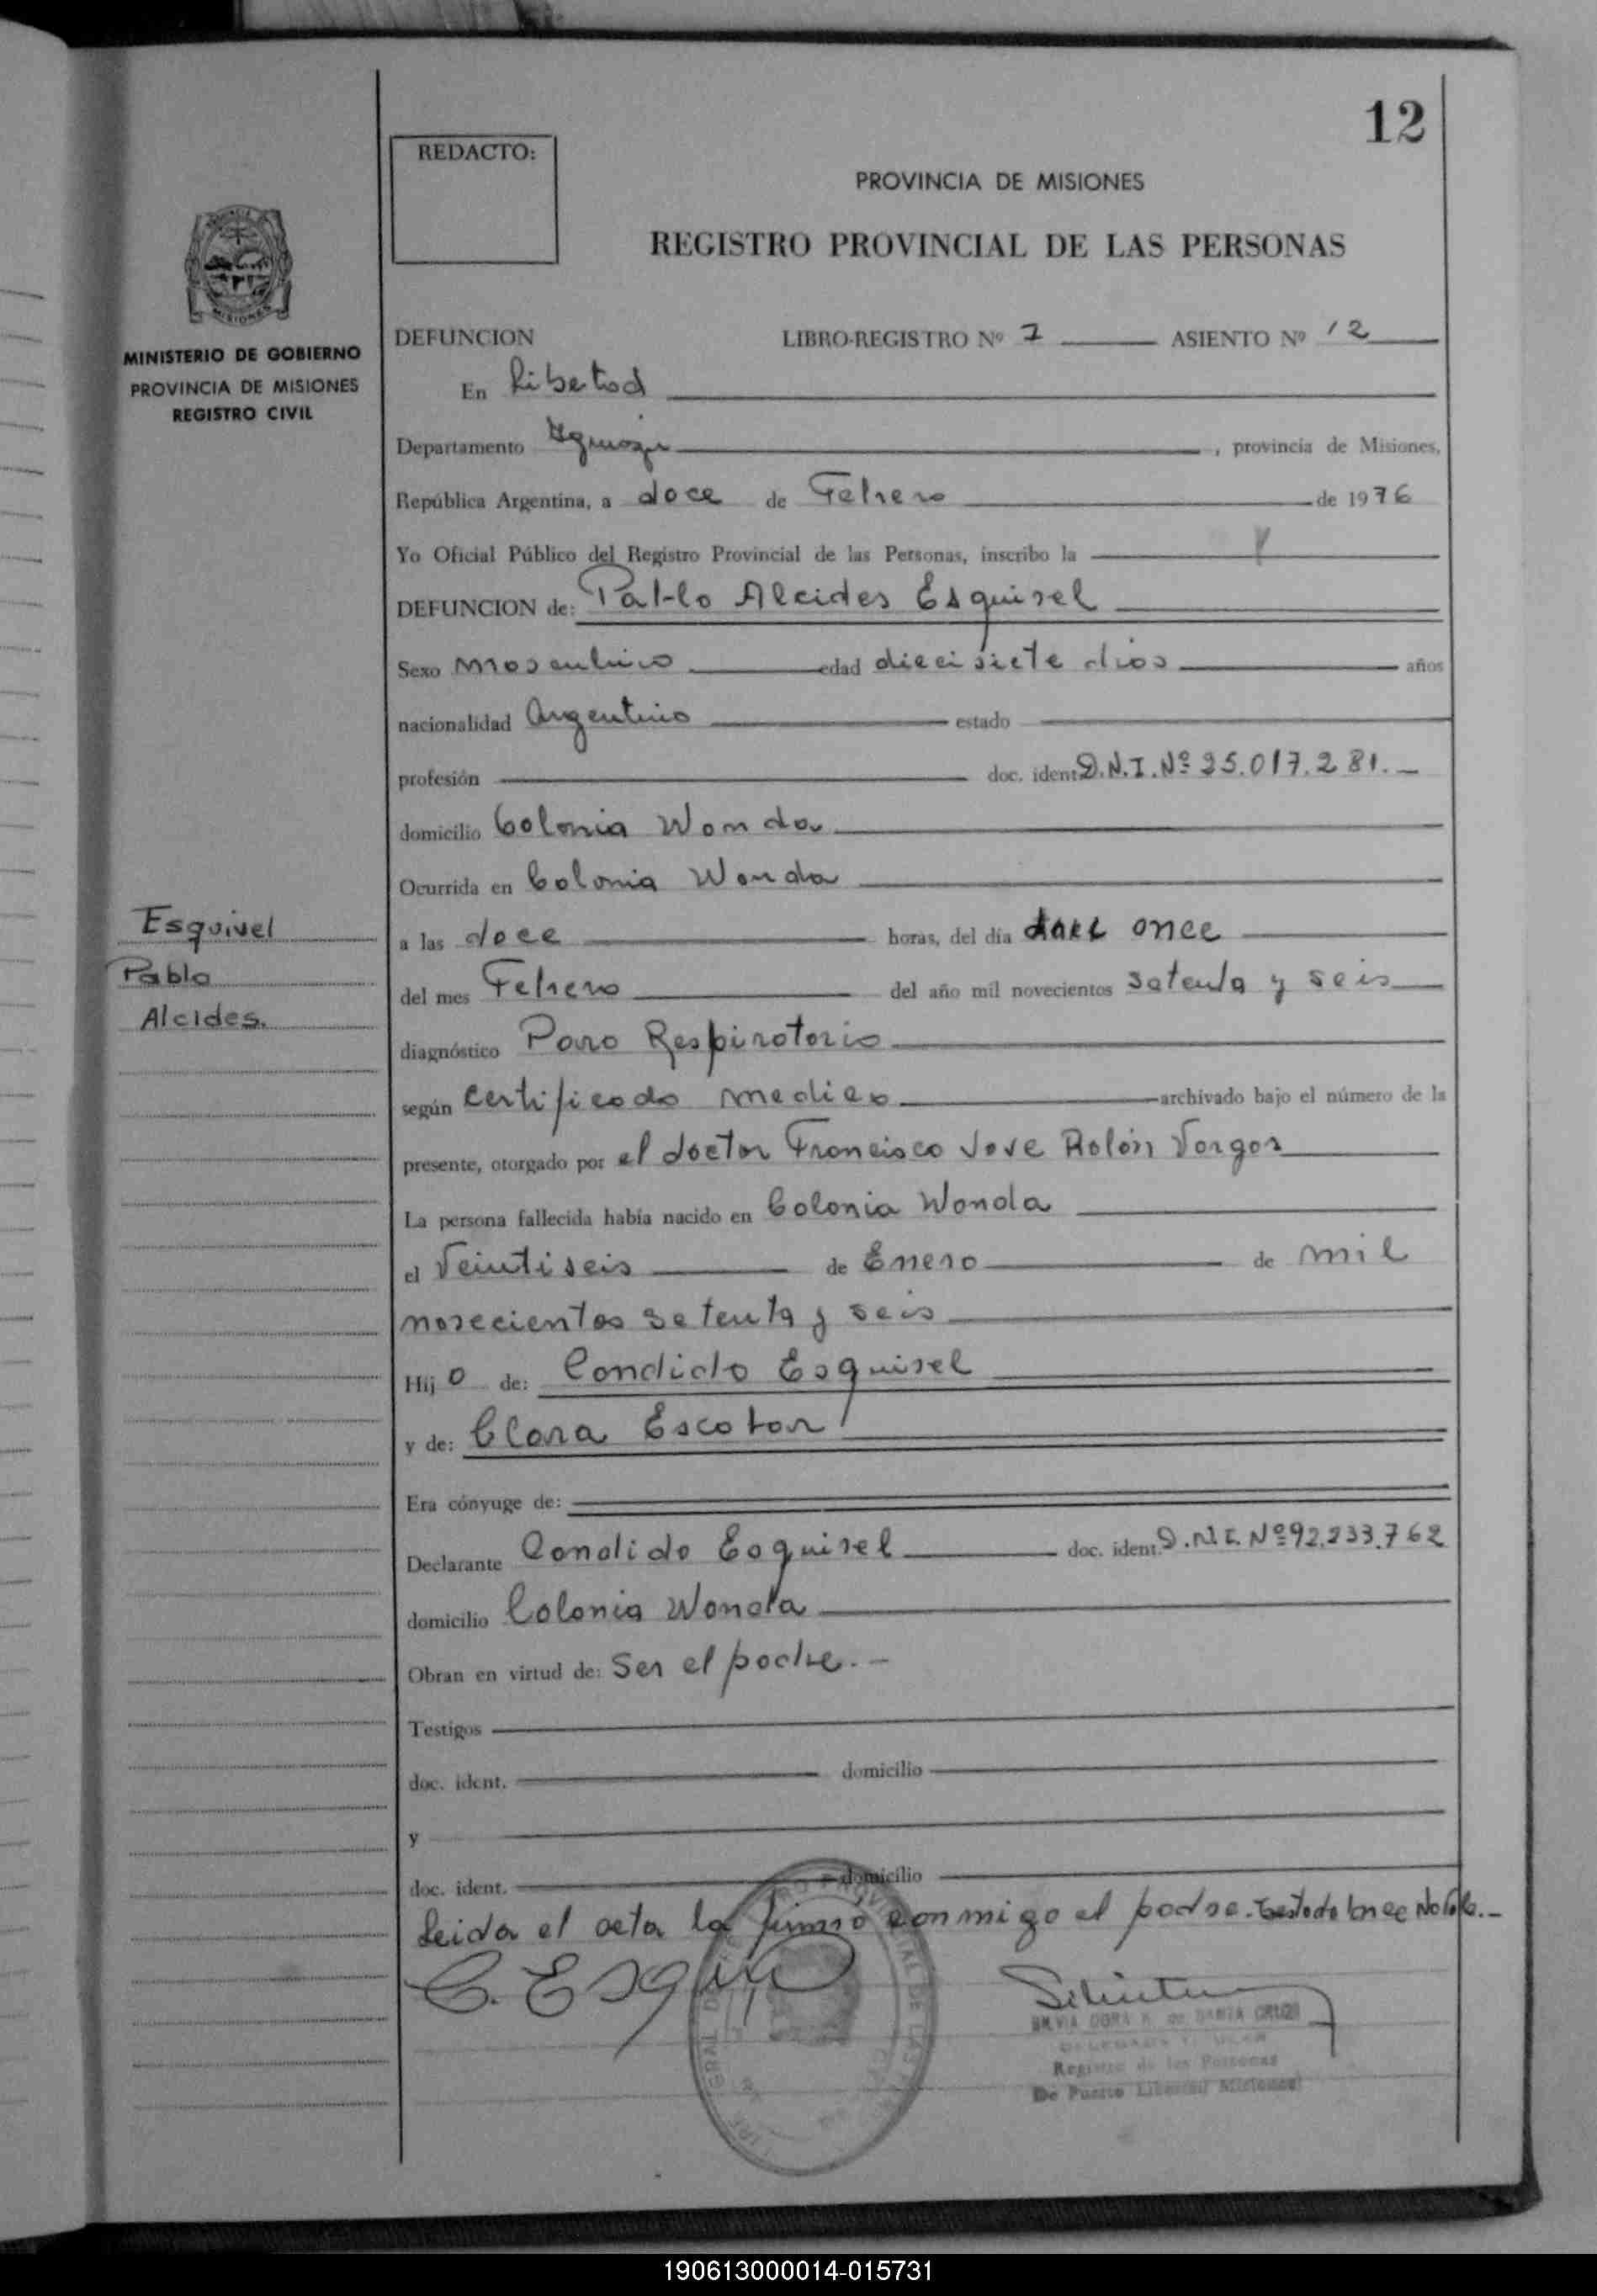 12
REDACTO:
PROVINCIA DE MISIONES
REGISTRO PROVINCIAL DE LAS PERSONAS
MISIONES
MINISTERIO DE GOBIERNO
PROVINCIA DE MISIONES
REGISTRO CIVIL
DEFUNCION LIBRO-REGISTRO Nº 7 ASIENTO Nº 12
En Libertad
Departamento Iguazú, provincia de Misiones,
República Argentina, a doce de Febrero de 1976
Yo Oficial Público del Registro Provincial de las Personas, inscribo la
DEFUNCION de: Pablo Alcides Esquivel
Sexo masculino edad diecisiete dias años
nacionalidad Argentino estado
profesión doc. ident. D.N.I. Nº 25.017.281.-
domicilio Colonia Wanda
Ocurrida en Colonia Wanda
a las doce horas, del día once
del mes Febrero del año mil novecientos setenta y seis
diagnóstico Paro Respiratorio
según certificado medico archivado bajo el número de la
presente, otorgado por el doctor Francisco Jove Rolón Vargas
La persona fallecida había nacido en Colonia Wanda
el Veintiseis de Enero de mil
novecientos setenta y seis
Hijo de: Candido Esquivel
y de: Clara Escobar
Era cónyuge de:
Declarante Candido Esquivel doc. ident. D.N.I. Nº 92.233.762
domicilio Colonia Wanda
Obran en virtud de: Ser el padre.-
Testigos
doc. ident. domicilio
y
doc. ident. domicilio
Leida el acta la firmó conmigo el padre. Testado No Vale.-
C. Esqui
SILVIA DORA R. de SANTA CRUZ
Registro de las Personas
De Puerto Libertad Misiones
Esquivel
Pablo
Alcides.
190613000014-015731